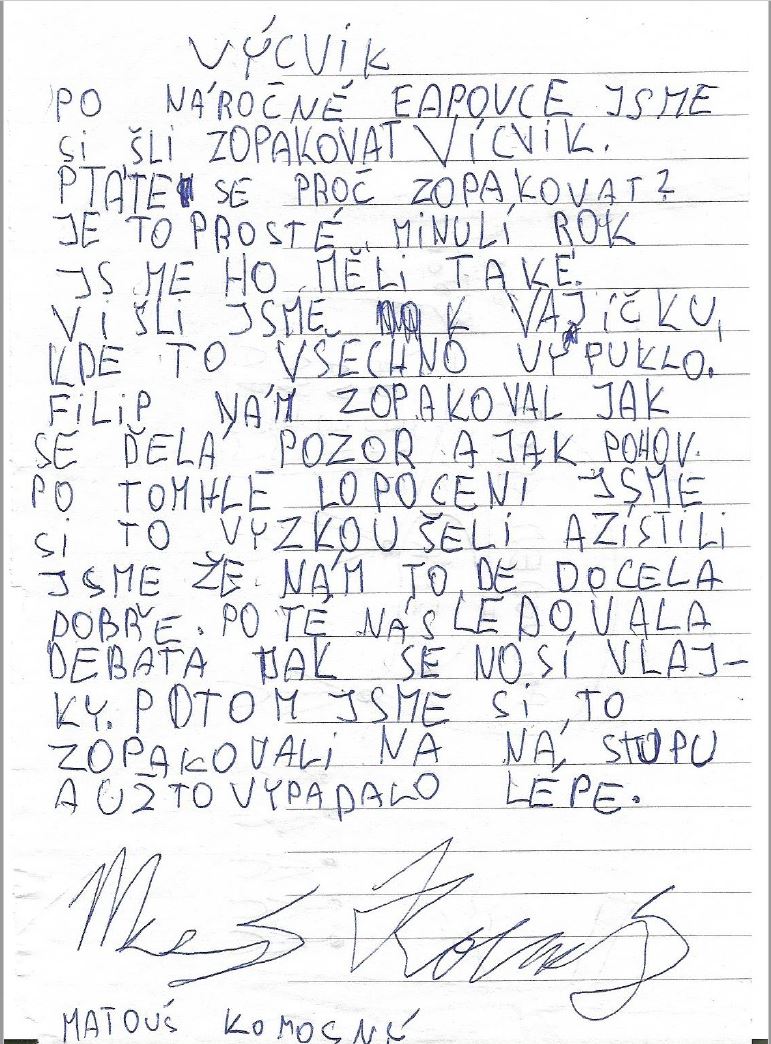 VÝCVIK
PO NÁROČNÉ EAPOVCE JSME
SI ŠLI ZOPAKOVAT VÍCVIK.
PTÁTE SE PROČ ZOPAKOVAT?
JE TO PROSTÉ MINULÍ ROK
JSME HO MĚLI TAKÉ.
VIŠLI JSME K VAJÍČKU,
KDE TO VŠECHNO VYPUKLO.
FILIP NÁM ZOPAKOVAL JAK
SE DĚLÁ POZOR A JAK POHOV.
PO TOMHLE LOPOCENÍ JSME
SI TO VYZKOUŠELI A ZÍSTILI
JSME ŽE NÁM TO DE DOCELA
DOBŘE. PO TÉ NASLEDOVALA
DEBATA JAK SE NOSÍ VLAJ-
KY. POTOM JSME SI TO
ZOPAKOVALI NA NÁSTUPU
A UŽ TO VYPADALO LÉPE.
MATOUŠ KOMOSNÝ